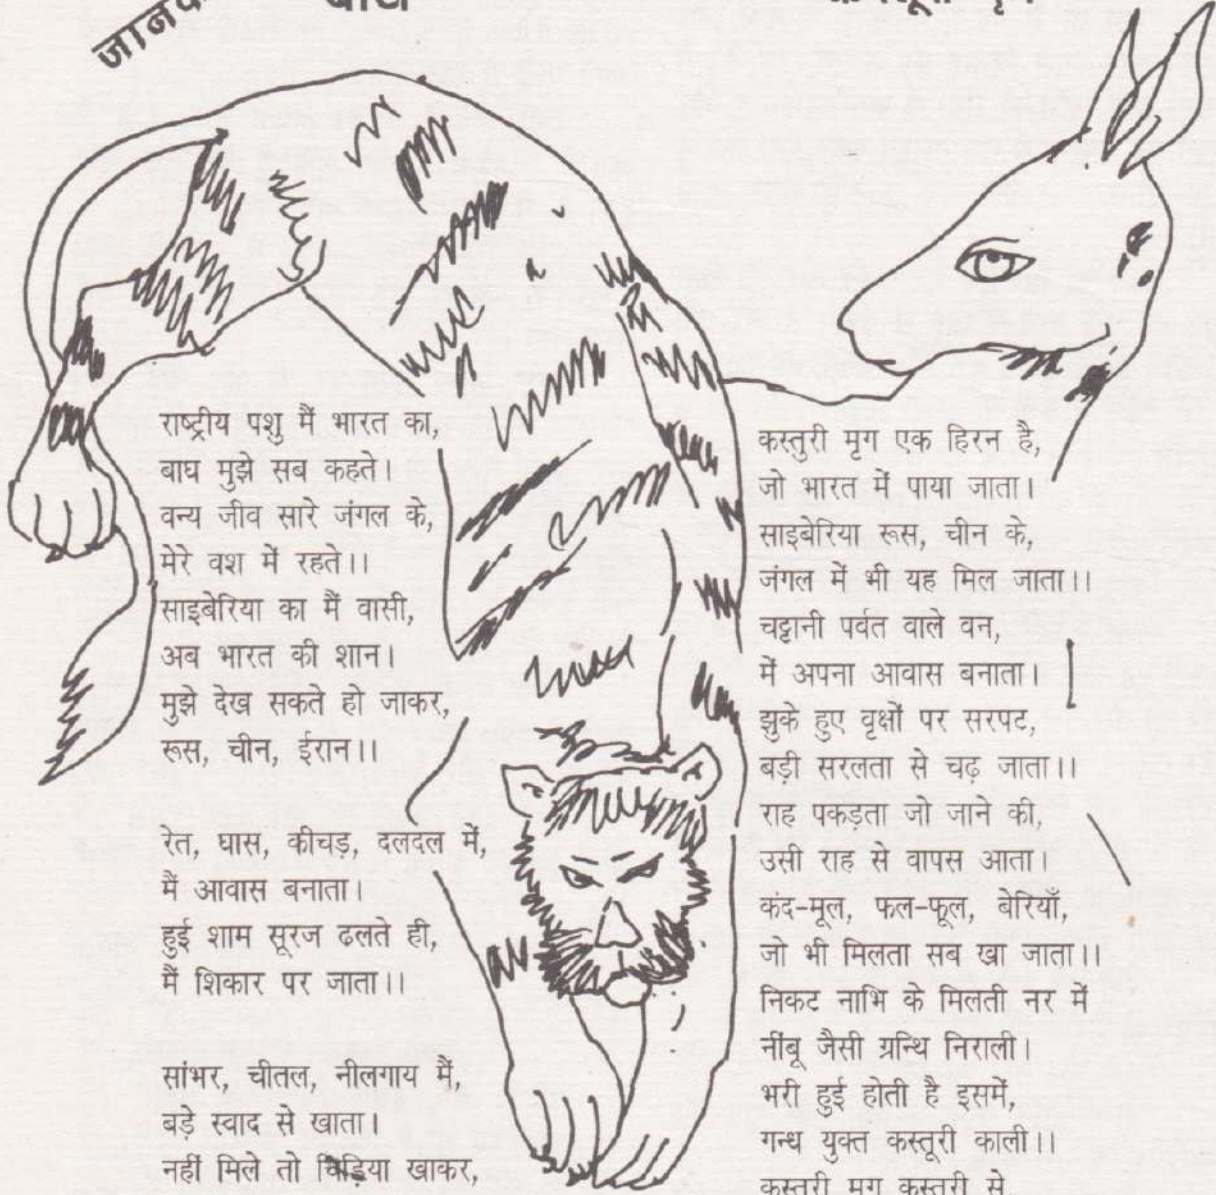 राष्ट्रीय पशु मैं भारत का,
बाघ मुझे सब कहते।
वन्य जीव सारे जंगल के,
मेरे वश में रहते।।
साइबेरिया का मैं वासी,
अब भारत की शान।
मुझे देख सकते हो जाकर,
रूस, चीन, ईरान।।
रेत, घास, कीचड़, दलदल में,
मैं आवास बनाता।
हुई शाम सूरज ढलते ही,
मैं शिकार पर जाता।।
सांभर, चीतल, नीलगाय मैं,
बड़े स्वाद से खाता।
नहीं मिले तो चिड़िया खाकर,
कस्तुरी मृग एक हिरन है,
जो भारत में पाया जाता।
साइबेरिया रूस, चीन के,
जंगल में भी यह मिल जाता।।
चट्टानी पर्वत वाले वन,
में अपना आवास बनाता।
झुके हुए वृक्षों पर सरपट,
बड़ी सरलता से चढ़ जाता।।
राह पकड़ता जो जाने की,
उसी राह से वापस आता।
कंद-मूल, फल-फूल, बेरियाँ,
जो भी मिलता सब खा जाता।।
निकट नाभि के मिलती नर में
नींबू जैसी ग्रन्थि निराली।
भरी हुई होती है इसमें,
गन्ध युक्त कस्तूरी काली।।
कस्तूरी मृग कस्तूरी से